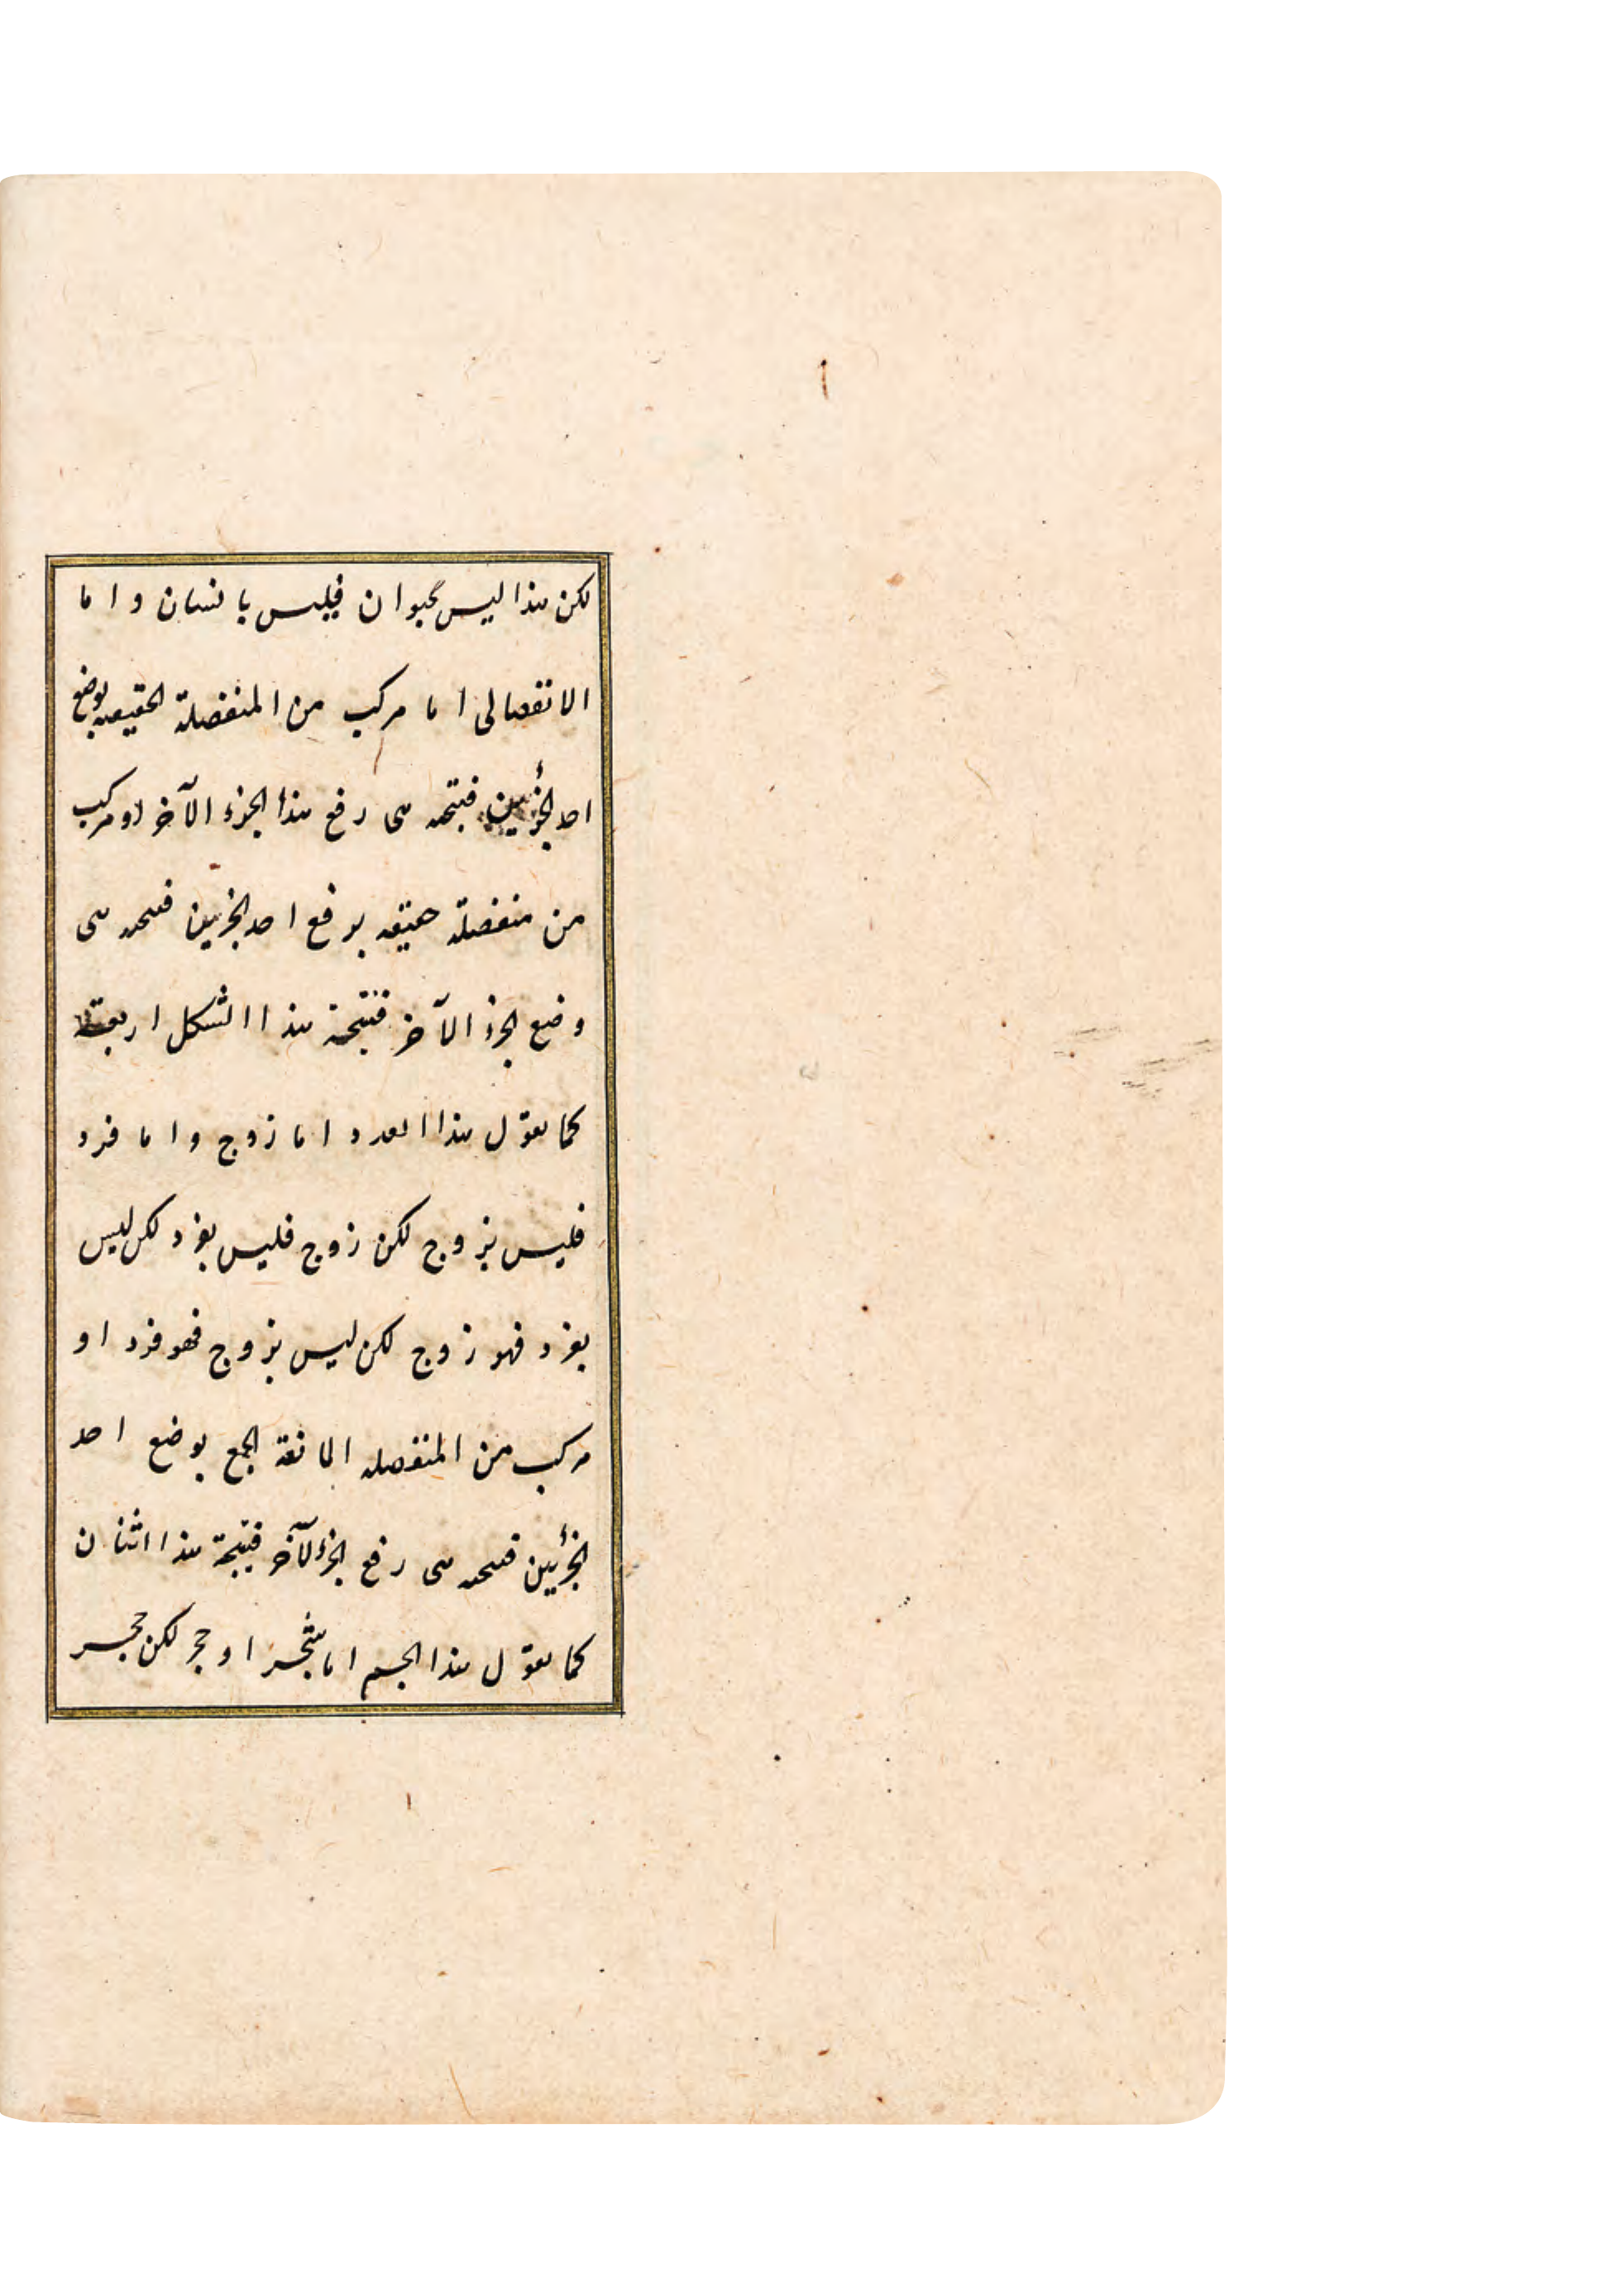 لكن هذا ليس بحيوان فليس بانسان واما
الانفصالى اما مركب من المنفصلة الحقيقيه بوضع
احد الجزئين فنتيجته هى رفع هذا الجزء الآخر او مركب
من منفصلة حقيقيه برفع احد الجزئين فنتيجته هى
وضع الجزء الآخر فنتيجة هذا الشكل اربعة
كما تقول هذا العدد اما زوج واما فرد
فليس بزوج لكن زوج فليس بفرد لكن ليس
بفرد فهو زوج لكن ليس بزوج فهو فرد او
مركب من المنفصله المانعة الجمع بوضع احد
الجزئين فنتيجته هى رفع الجزء الآخر فنتيجة هذا اثنان
كما تقول هذا الجسم اما شجر او حجر لكن حجر